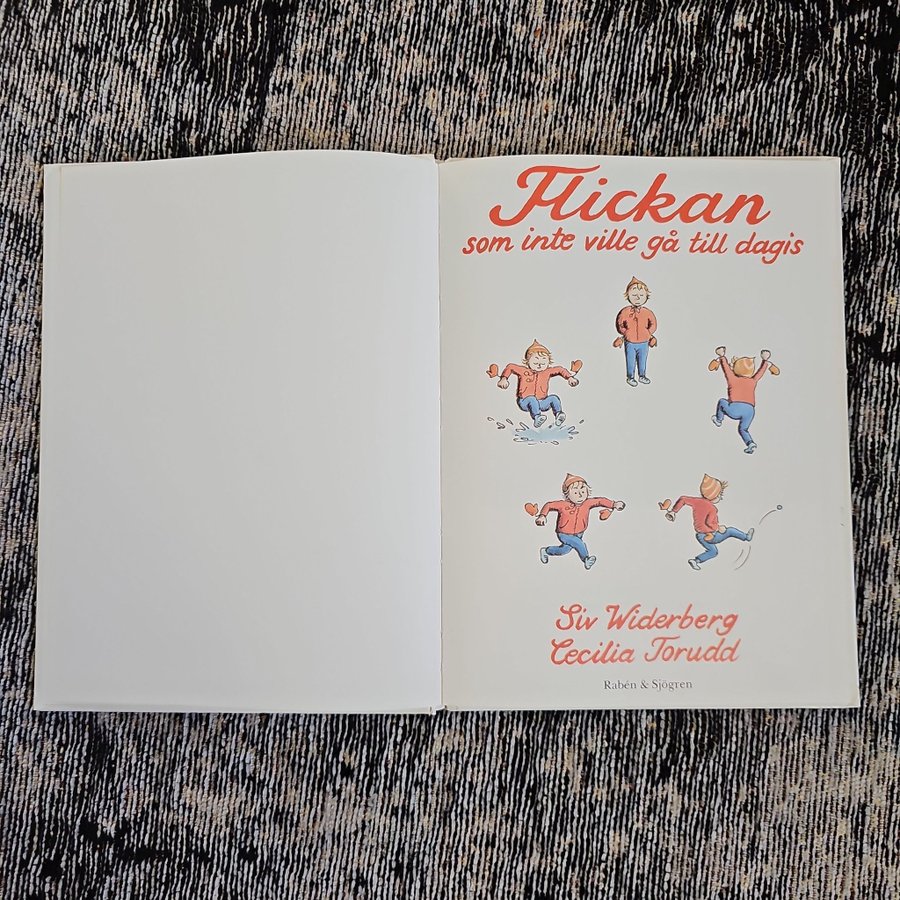 Flickan
som inte ville gå till dagis
Siv Widerberg
Cecilia Torudd
Rabén & Sjögren